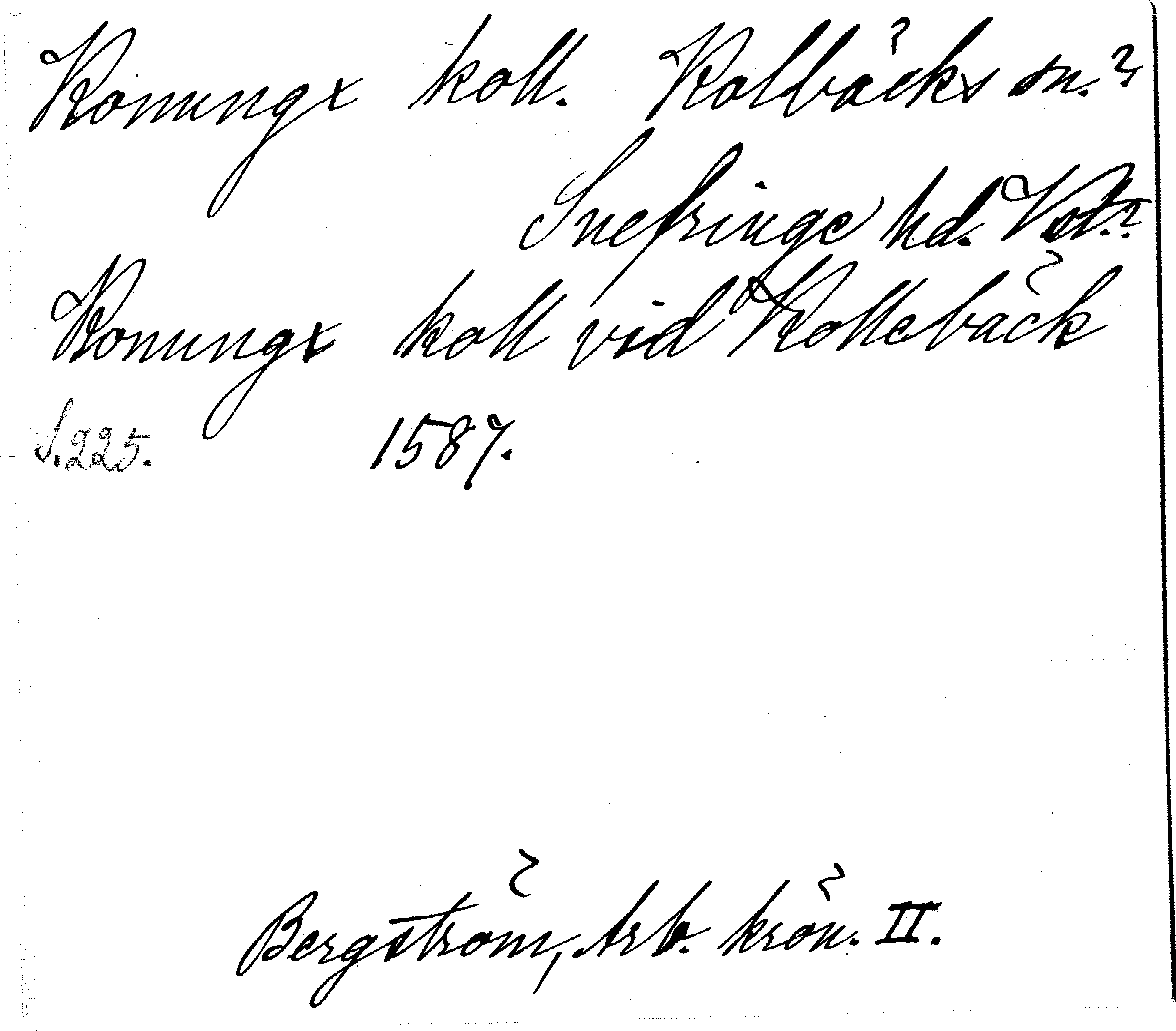 Konungx koll. Kolbäcks sn.?
Snefringe hd. Vstm.?
Konungx koll vid Kollebäck
S. 225. 1587.
Bergström, Arb. krön. II.